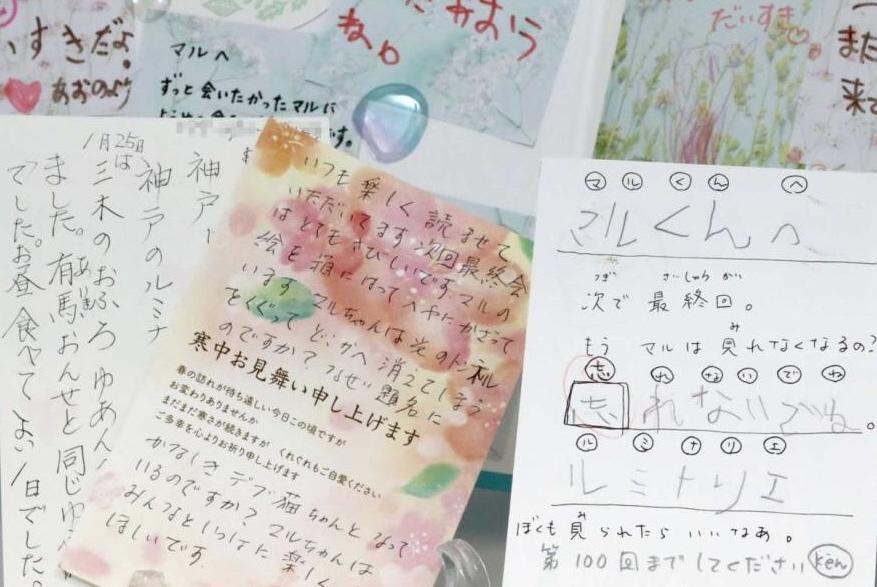 いすきだよ。
あおのより
マルへ
ずっと会いたかったマルに
です。
ね。
だいすき
また
来て
1月25日は
神戸
神戸のルミナ
三木のおふろ
ました。有馬おんせと同じゆ
でした。お昼食べてよい1日でした。
いつも楽しく読ませて
いただいてます 次回最終会
はとてもさびしいです マルの
絵を箱にはってへやにかざって
います マルちゃんは光のトンネル
をくぐって どこかへ 消えてしまう
のですか? なぜ題名に
寒中お見舞い申し上げます
春の訪れが待ち遠しい今日この頃ですが
お変わりありませんか
まだまだ寒さが続きますが くれぐれもご自愛ください
ご多幸を心よりお祈り申し上げます
かなしきデブ猫ちゃんとなって
いるのですか? マルちゃんは
みんなといっしょに 楽しく
ほしいです
マルくんへ
マルくんへ
つぎ さいしゅうかい
次で 最終回。
み
もう マルは見れなくなるの?
忘れないでね
忘れないでね。
ルミナリエ
ルミナリエ
み
ぼくも見られたらいいなあ。
第100回までしてください ken